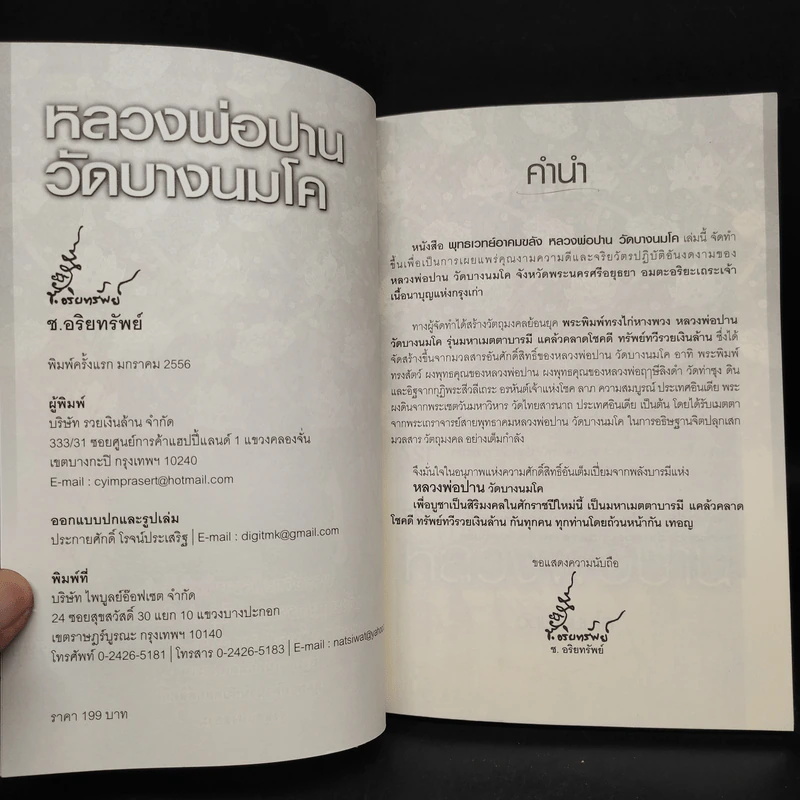 หลวงพ่อปาน
วัดบางนมโค
ช.อริยทรัพย์
ช.อริยทรัพย์
พิมพ์ครั้งแรก มกราคม 2556
ผู้พิมพ์
บริษัท รวยเงินล้าน จำกัด
333/31 ซอยศูนย์การค้าแฮปปี้แลนด์ 1 แขวงคลองจั่น
เขตบางกะปิ กรุงเทพฯ 10240
E-mail : cyimprasert@hotmail.com
ออกแบบปกและรูปเล่ม
ประกายศักดิ์ โรจน์ประเสริฐ | E-mail : digitmk@gmail.com
พิมพ์ที่
บริษัท ไพบูลย์อ๊อฟเซต จำกัด
24 ซอยสุขสวัสดิ์ 30 แยก 10 แขวงบางปะกอก
เขตราษฎร์บูรณะ กรุงเทพฯ 10140
โทรศัพท์ 0-2426-5181 | โทรสาร 0-2426-5183 | E-mail : natsiwat@yahoo
ราคา 199 บาท
คำนำ
หนังสือ พุทธเวทย์อาคมขลัง หลวงพ่อปาน วัดบางนมโค เล่มนี้ จัดทำ
ขึ้นเพื่อเป็นการเผยแพร่คุณงามความดีและจริยวัตรปฏิบัติอันงดงามของ
หลวงพ่อปาน วัดบางนมโค จังหวัดพระนครศรีอยุธยา อมตะอริยะเถระเจ้า
เนื้อนาบุญแห่งกรุงเก่า
ทางผู้จัดทำได้สร้างวัตถุมงคลย้อนยุค พระพิมพ์ทรงไก่หางพวง หลวงพ่อปาน
วัดบางนมโค รุ่นมหาเมตตาบารมี แคล้วคลาดโชคดี ทรัพย์ทวีรวยเงินล้าน ซึ่งได้
จัดสร้างขึ้นจากมวลสารอันศักดิ์สิทธิ์ของหลวงพ่อปาน วัดบางนมโค อาทิ พระพิมพ์
ทรงสัตว์ ผงพุทธคุณของหลวงพ่อปาน ผงพุทธคุณของหลวงพ่อฤๅษีลิงดำ วัดท่าซุง ดิน
และอิฐจากกุฏิพระสีวลีเถระ อรหันต์เจ้าแห่งโชค ลาภ ความสมบูรณ์ ประเทศอินเดีย พระ
ผงดินจากพระเชตวันมหาวิหาร วัดไทยสารนาถ ประเทศอินเดีย เป็นต้น โดยได้รับเมตตา
จากพระเถราจารย์สายพุทธาคมหลวงพ่อปาน วัดบางนมโค ในการอธิษฐานจิตปลุกเสก
มวลสาร วัตถุมงคล อย่างเต็มกำลัง
จึงมั่นใจในอนุภาพแห่งความศักดิ์สิทธิ์อันเต็มเปี่ยมจากพลังบารมีแห่ง
หลวงพ่อปาน วัดบางนมโค
เพื่อบูชาเป็นสิริมงคลในศักราชปีใหม่นี้ เป็นมหาเมตตาบารมี แคล้วคลาด
โชคดี ทรัพย์ทวีรวยเงินล้าน กันทุกคน ทุกท่านโดยถ้วนหน้ากัน เทอญ
ขอแสดงความนับถือ
ช.อริยทรัพย์
ช. อริยทรัพย์